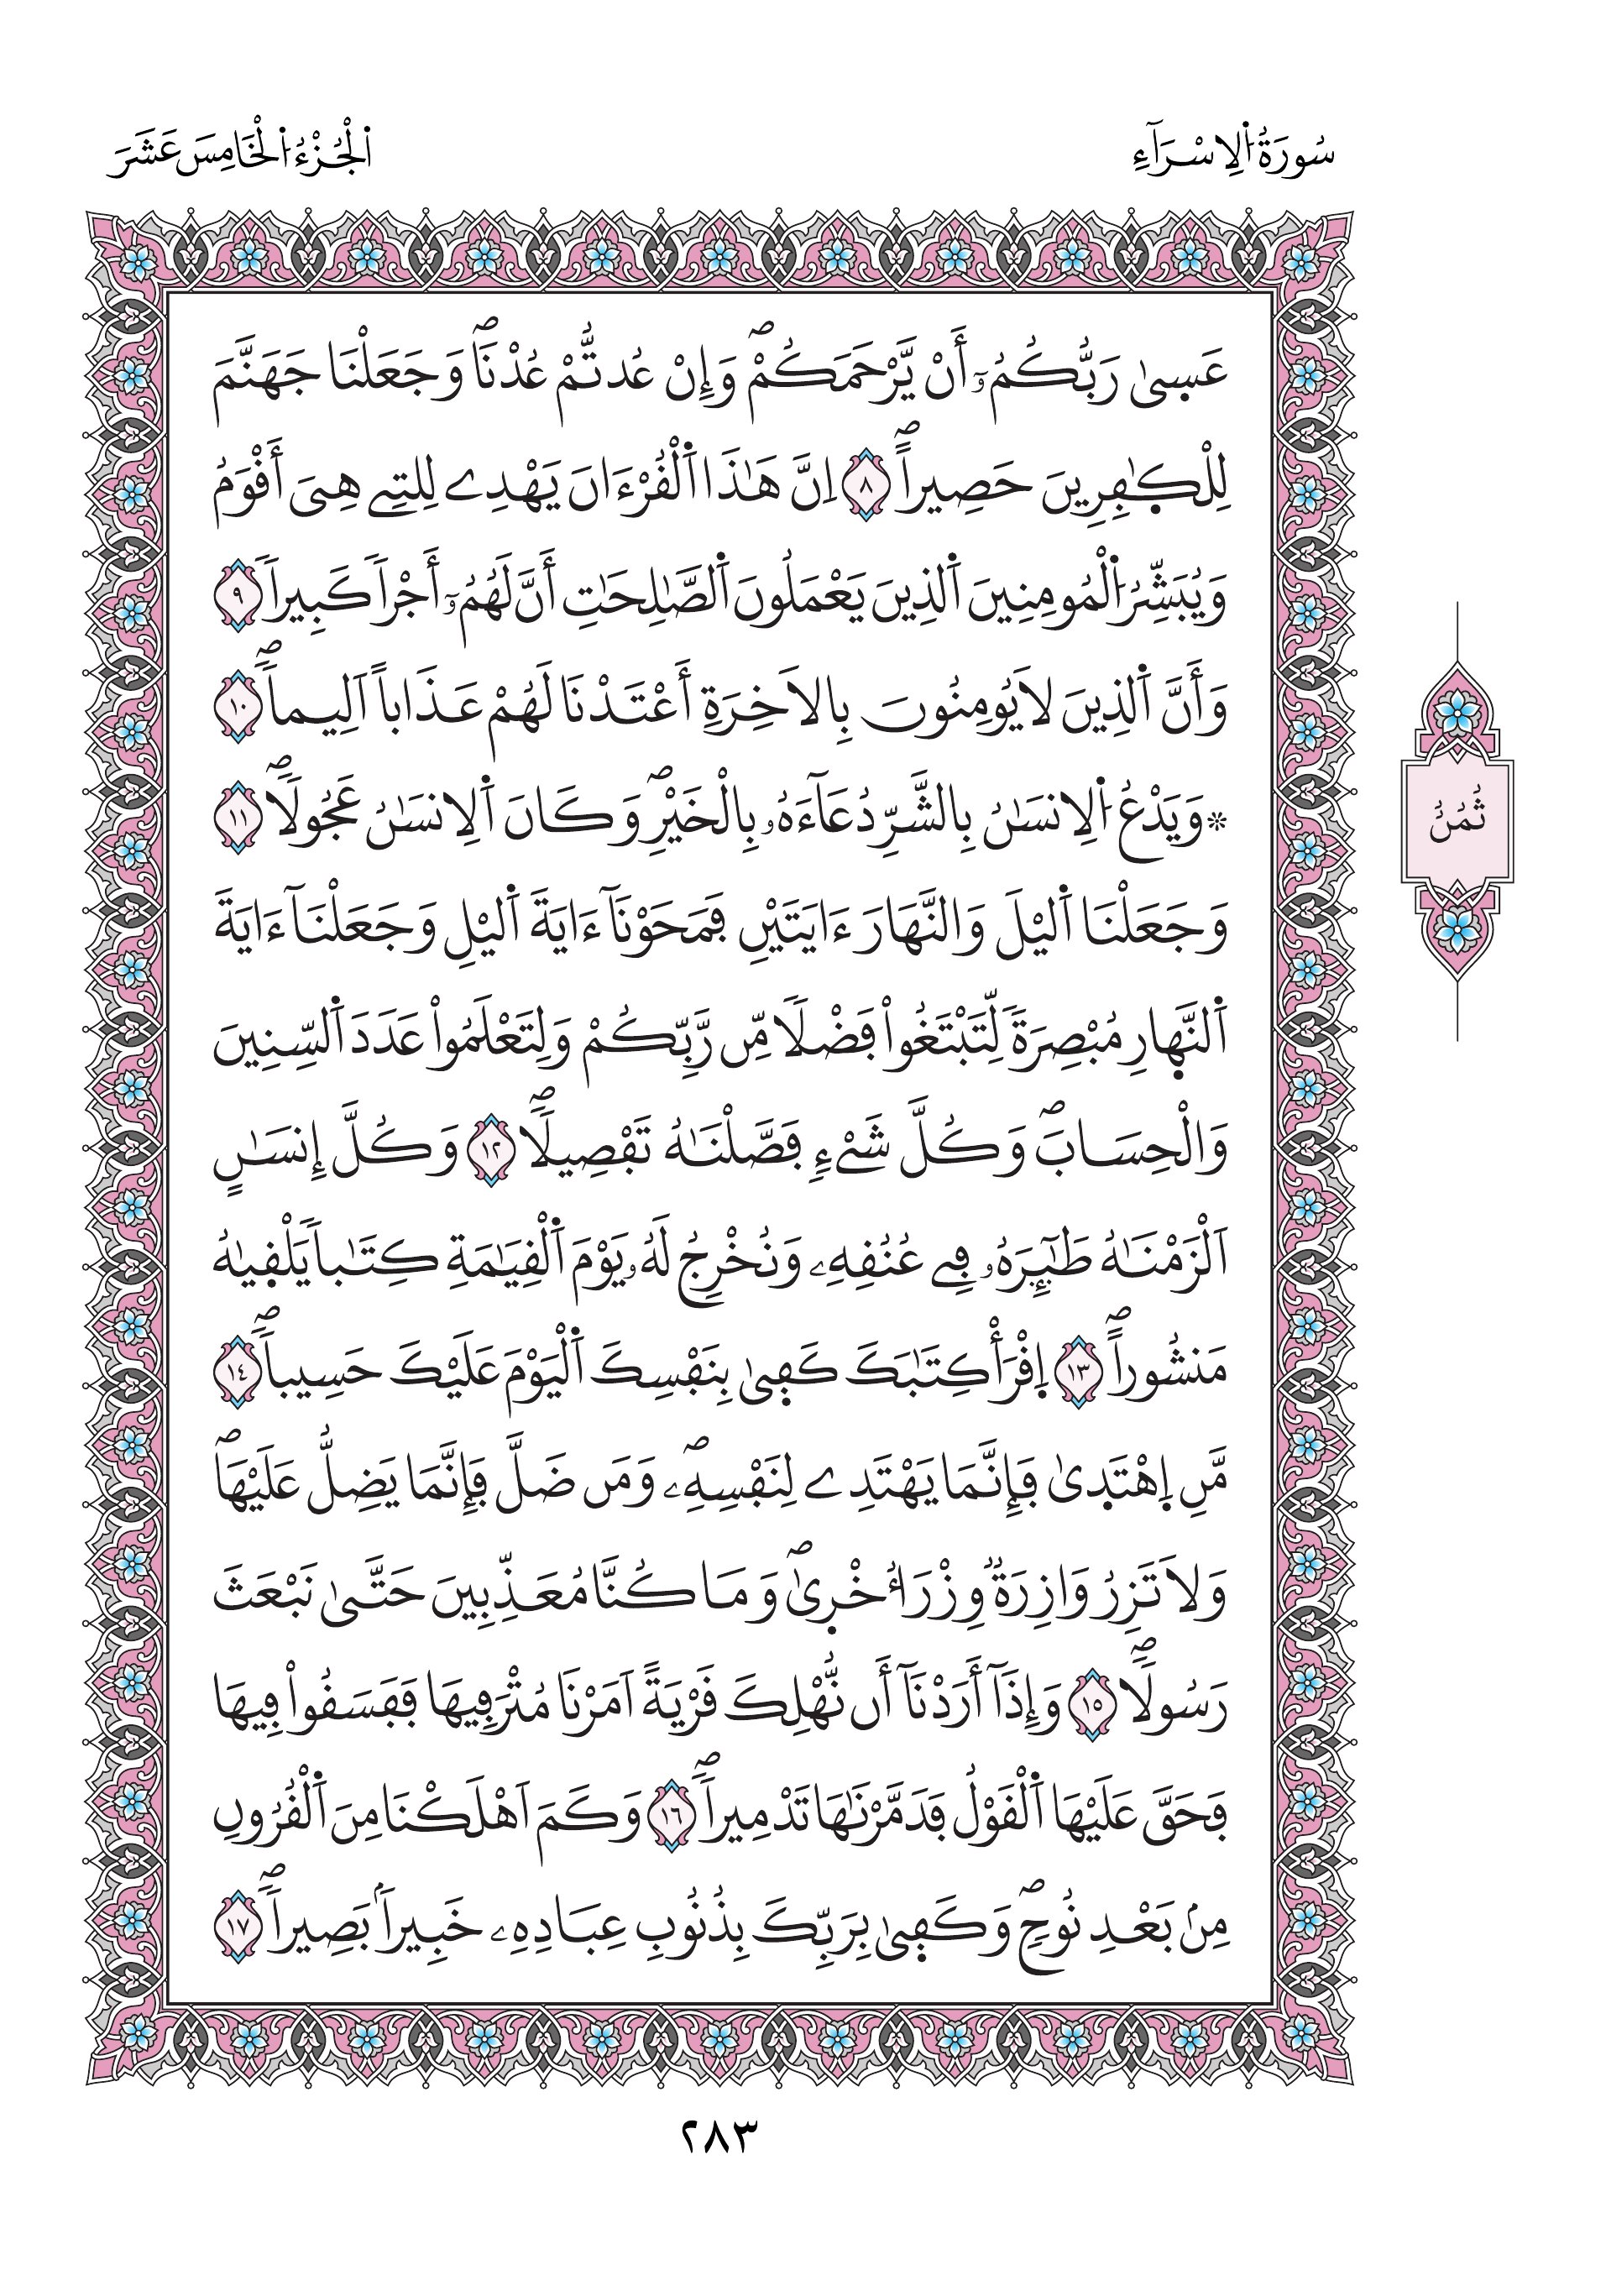 سُورَةُ اُ۬لِاسْرَآءِ
اَ۬لْجُزْءُ اُ۬لْخَامِسَ عَشَرَ
عَس۪ىٰ رَبُّكُمُۥٓ أَنْ يَّرْحَمَكُمْۖ وَإِنْ عُدتُّمْ عُدْنَاۖ وَجَعَلْنَا جَهَنَّمَ
لِلْكٰ۪فِرِينَ حَصِيراًۖ ٨ اِنَّ هَٰذَا اَ۬لْقُرْءَانَ يَهْدِے لِلتِے هِيَ أَقْوَمُ
وَيُبَشِّرُ اُ۬لْمُومِنِينَ اَ۬لذِينَ يَعْمَلُونَ اَ۬لصَّٰلِحَٰتِ أَنَّ لَهُمُۥٓ أَجْراٗ كَبِيراٗ ٩
وَأَنَّ اَ۬لذِينَ لَا يُومِنُونَ بِالَاخِرَةِ أَعْتَدْنَا لَهُمْ عَذَاباً اَلِيماٗۖ ١٠
۞وَيَدْعُ اُ۬لِانسَٰنُ بِالشَّرِّ دُعَآءَهُۥ بِالْخَيْرِۖ وَكَانَ اَ۬لِانسَٰنُ عَجُولاٗۖ ١١
وَجَعَلْنَا اَ۬ليْلَ وَالنَّهَارَ ءَايَتَيْنِ فَمَحَوْنَآ ءَايَةَ اَ۬ليْلِ وَجَعَلْنَآ ءَايَةَ
اَ۬لنَّه۪ارِ مُبْصِرَةٗ لِّتَبْتَغُواْ فَضْلاٗ مِّن رَّبِّكُمْ وَلِتَعْلَمُواْ عَدَدَ اَ۬لسِّنِينَ
وَالْحِسَابَۖ وَكُلَّ شَےْءٖ فَصَّلْنَٰهُ تَفْصِيلاٗۖ ١٢ وَكُلَّ إِنسَٰنٍ
اَلْزَمْنَٰهُ طَٰٓئِرَهُۥ فِے عُنُقِهِۦ وَنُخْرِجُ لَهُۥ يَوْمَ اَ۬لْقِيَٰمَةِ كِتَٰباٗ يَلْق۪يٰهُ
مَنشُوراًۖ ١٣ اِ۪قْرَأْ كِتَٰبَكَ كَف۪ىٰ بِنَفْسِكَ اَ۬لْيَوْمَ عَلَيْكَ حَسِيباٗۖ ١٤
مَّنِ اِ۪هْتَد۪ىٰ فَإِنَّمَا يَهْتَدِے لِنَفْسِهِۦۖ وَمَن ضَلَّ فَإِنَّمَا يَضِلُّ عَلَيْهَاۖ
وَلَا تَزِرُ وَازِرَةٞ وِزْرَ أُخْر۪ىٰۖ وَمَا كُنَّا مُعَذِّبِينَ حَتَّىٰ نَبْعَثَ
رَسُولاٗۖ ١٥ وَإِذَآ أَرَدْنَآ أَن نُّهْلِكَ قَرْيَةً اَمَرْنَا مُتْرَفِيهَا فَفَسَقُواْ فِيهَا
فَحَقَّ عَلَيْهَا اَ۬لْقَوْلُ فَدَمَّرْنَٰهَا تَدْمِيراٗۖ ١٦ وَكَمَ اَهْلَكْنَا مِنَ اَ۬لْقُرُونِ
مِنۢ بَعْدِ نُوحٖۖ وَكَف۪ىٰ بِرَبِّكَ بِذُنُوبِ عِبَادِهِۦ خَبِيراَۢ بَصِيراٗۖ ١٧
ثُمُنٌ
٢٨٣